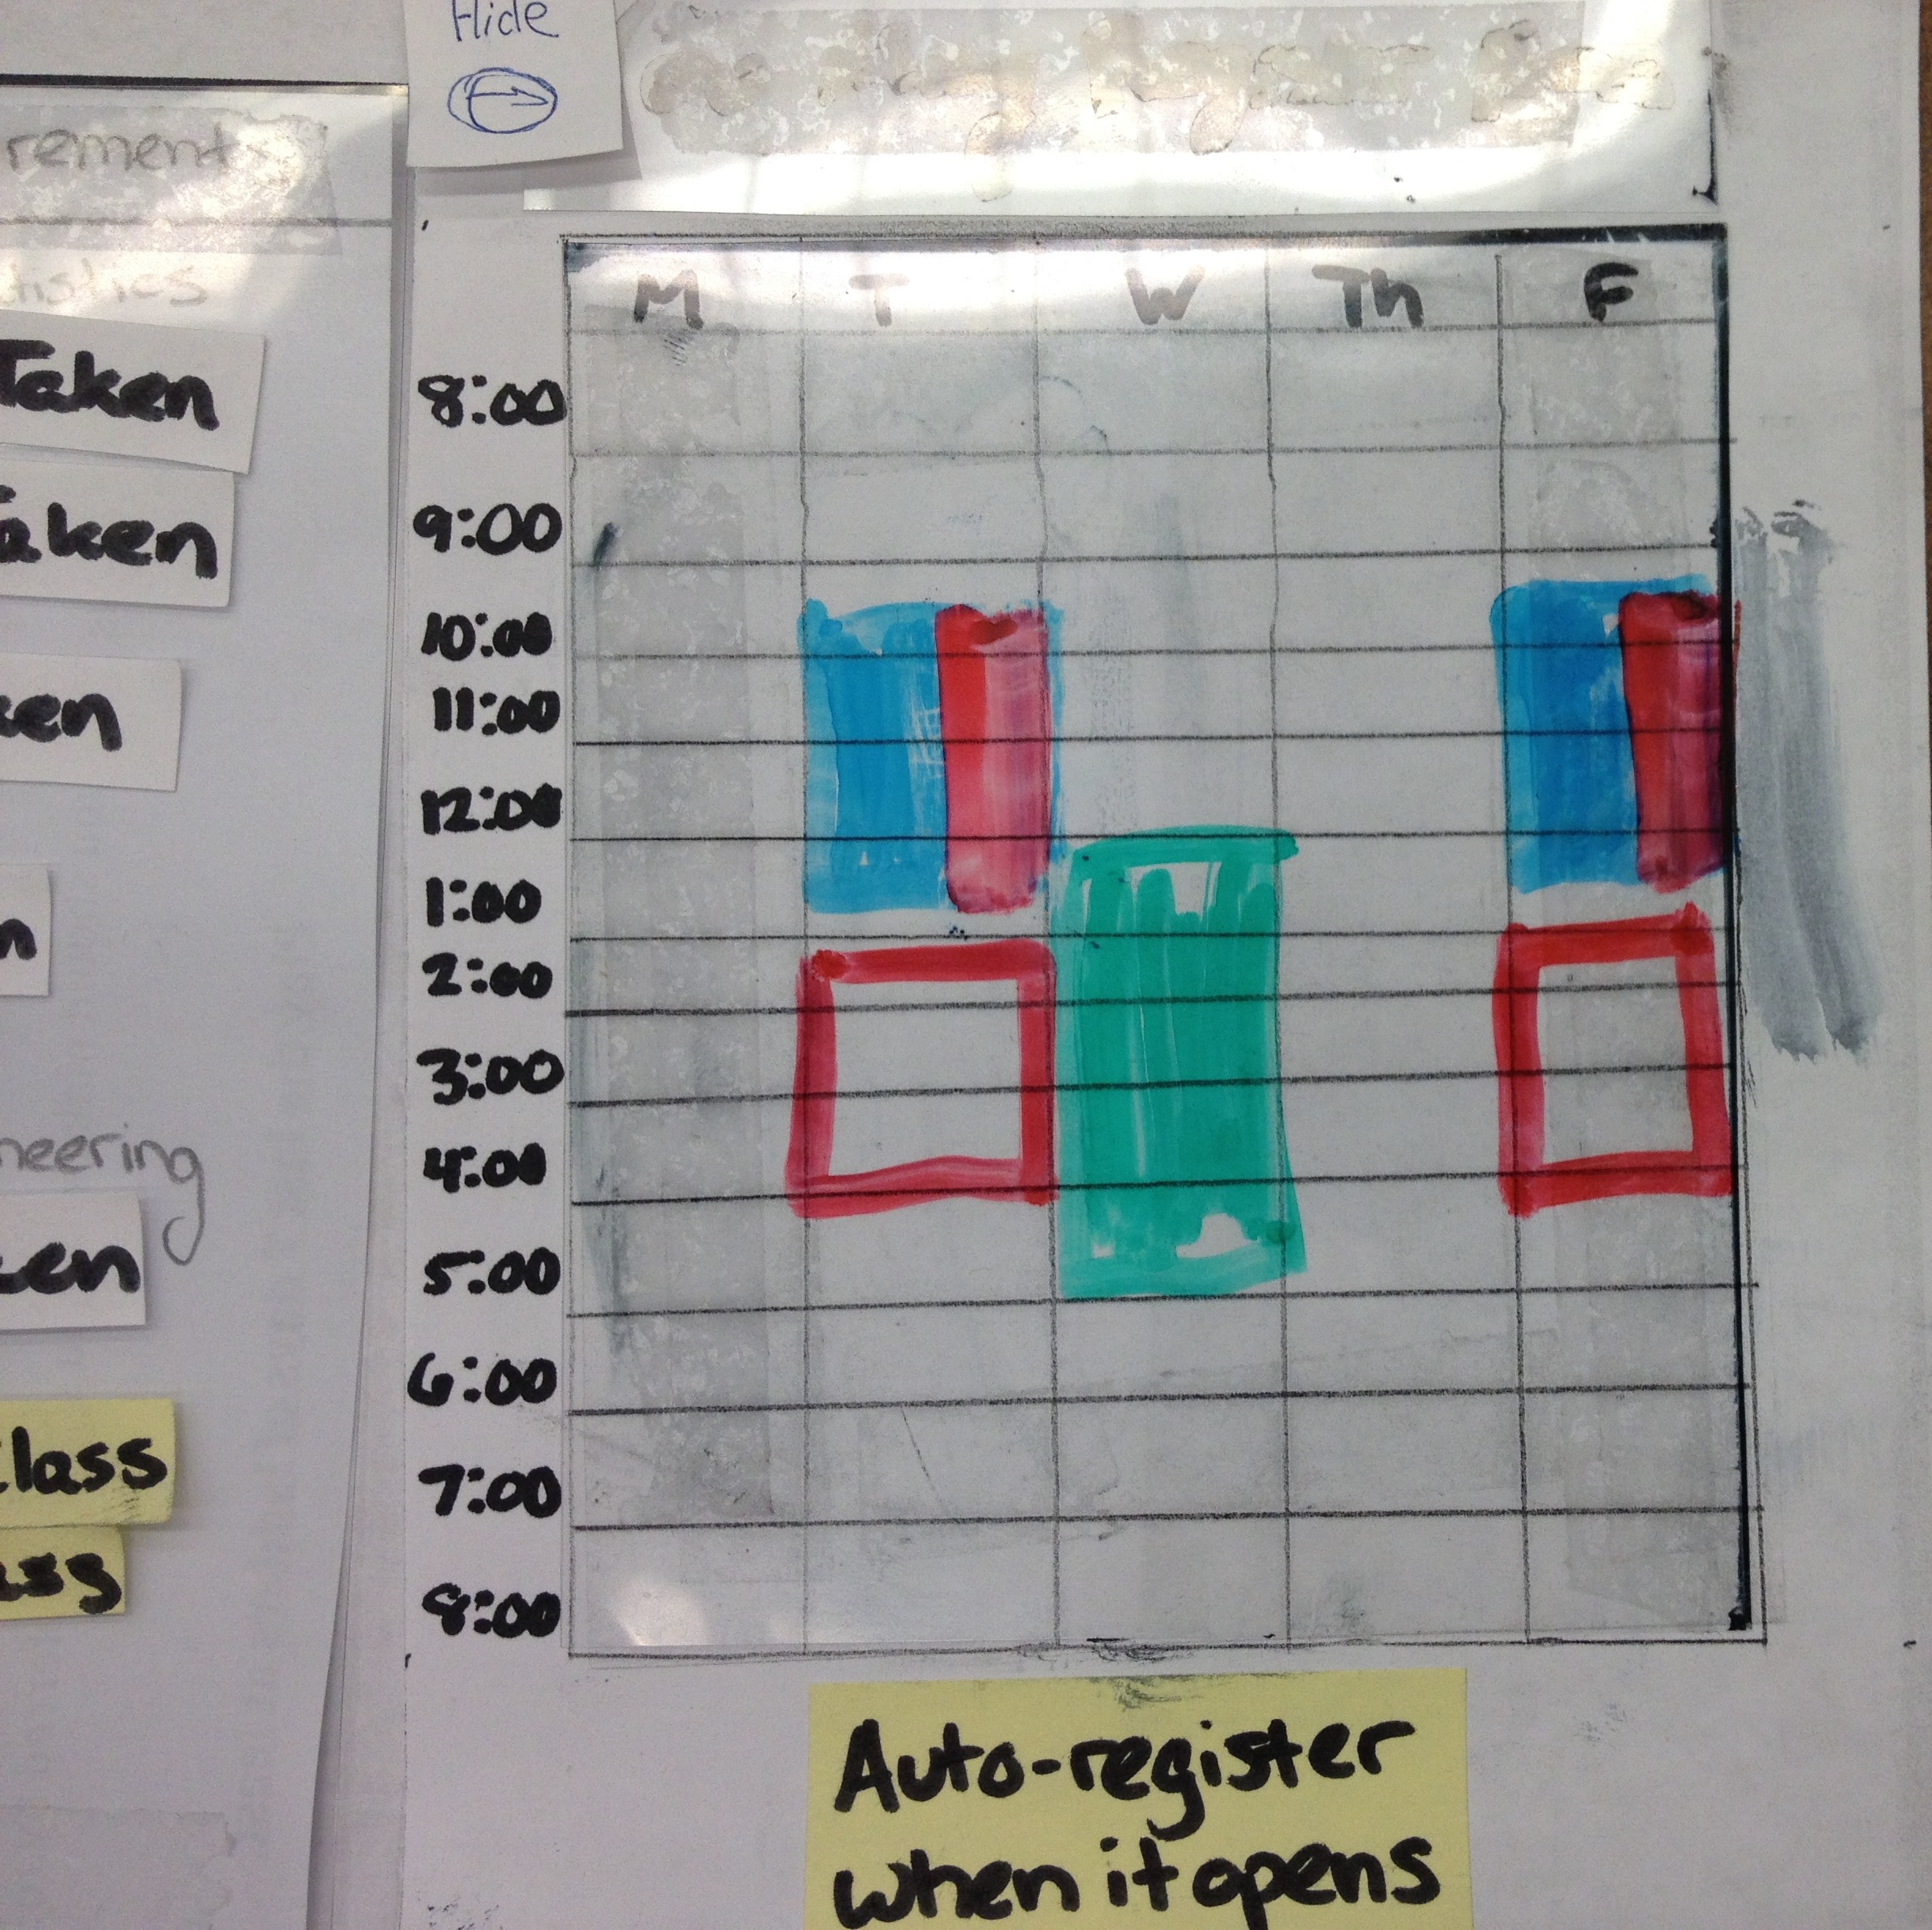 Hide
rement
tistics
Taken
aken
ken
n
neering
ken
Class
ass
M T W Th F
8:00
9:00
10:00
11:00
12:00
1:00
2:00
3:00
4:00
5:00
6:00
7:00
8:00
Auto-register
when it opens